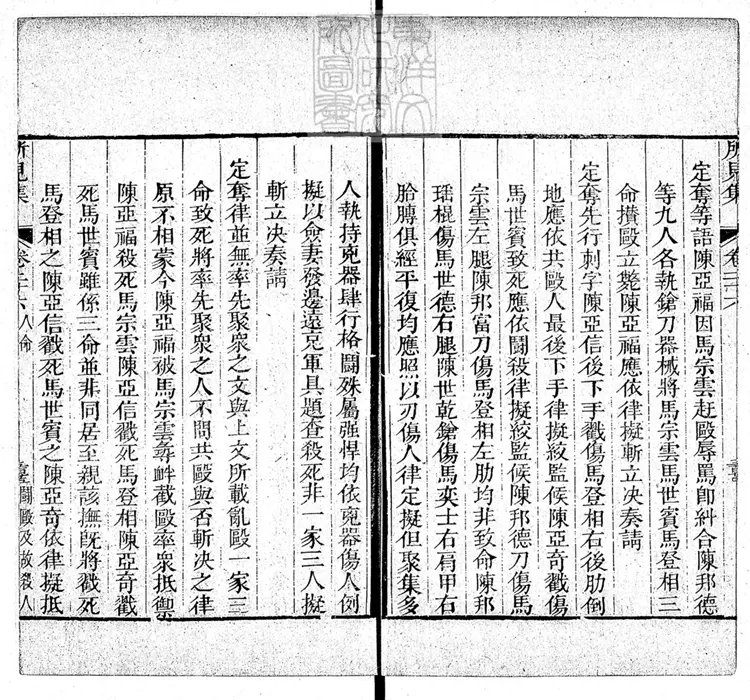 所見集
卷二十六
定奪等語陳亞福因馬宗雲赶毆辱罵卽糾合陳邦德
等九人各執鎗刀器械將馬宗雲馬世賓馬登相三
命攢毆立斃陳亞福應依律擬斬立决奏請
定奪先行刺字陳亞信後下手戳傷馬登相右後肋倒
地應依共毆人最後下手律擬絞監候陳亞奇戳傷
馬世賓致死應依鬪殺律擬絞監候陳邦德刀傷馬
宗雲左腿陳邦富刀傷馬登相左肋均非致命陳邦
瑶棍傷馬世德右腿陳世乾鎗傷馬奕士右肩甲右
胳膊俱經平復均應照以刃傷人律定擬但聚集多
人執持兇器肆行格鬪殊屬强悍均依兇器傷人例
擬以僉妻發邊遠充軍具題查殺死非一家三人擬
斬立决奏請
定奪律並無率先聚衆之文與上文所載亂毆一家三
命致死將率先聚衆之人不問共毆與否斬决之律
原不相蒙今陳亞福被馬宗雲尋衅截毆率衆抵禦
陳亞福殺死馬宗雲陳亞信戳死馬登相陳亞奇戳
死馬世賓雖係三命並非同居至親該撫旣將戳死
馬登相之陳亞信戳死馬世賓之陳亞奇依律擬抵
所見集
卷二十六 人命
鬪毆及故殺人